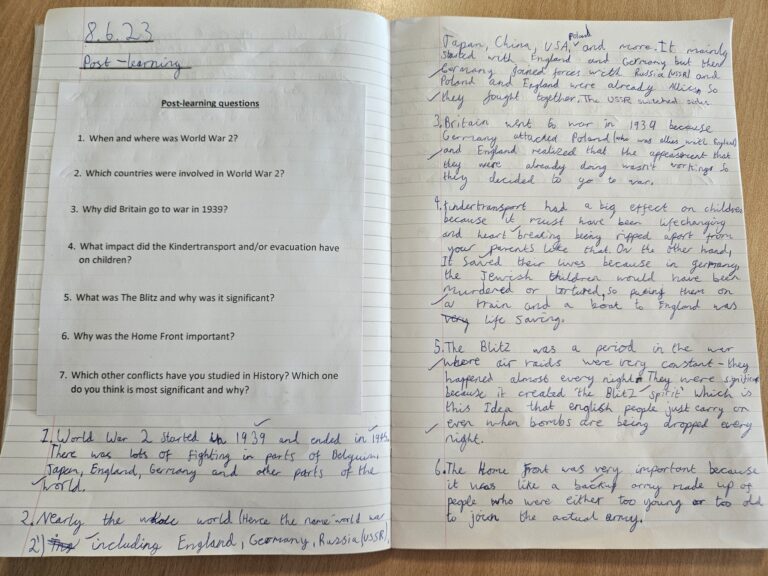 8.6.23
Post-learning
Post-learning questions
1. When and where was World War 2?
2. Which countries were involved in World War 2?
3. Why did Britain go to war in 1939?
4. What impact did the Kindertransport and/or evacuation have
on children?
5. What was The Blitz and why was it significant?
6. Why was the Home Front important?
7. Which other conflicts have you studied in History? Which one
do you think is most significant and why?
1. World War 2 started in 1939 and ended in 1945.
There was lots of fighting in parts of Belgium,
Japan, England, Germany and other parts of the
world.
2. Nearly the whole world (Hence the name world war
2') including England, Germany, Russia (USSR),
Japan, China, USA, Poland and more. It mainly
started with England and Germany but then
Germany joined forces with Russia (USSR) and
Poland and England were already Allies, so
they fought together. The USSR switched sides.
3. Britain went to war in 1939 because
Germany attacked Poland (who was allies with England)
and England realized that the appeasment that
they were already doing wasn't working so
they decided to go to war.
4. Kindertransport had a big effect on children
because it must have been lifechanging
and heart breaking being ripped apart from
your parents like that. On the other hand,
It saved their lives because in germany,
the Jewish children would have been
murdered or tortured, so puting them on
a train and a boat to England was
life saving.
5. The Blitz was a period in the war
where air raids were very constant - they
happened almost every night. They were significant
because it created 'the Blitz spirit' which is
this Idea that english people just carry on
even when bombs are being dropped every
night.
6. The Home Front was very important because
it was like a backup army made up of
people who were either too young or too old
to join the actual army.